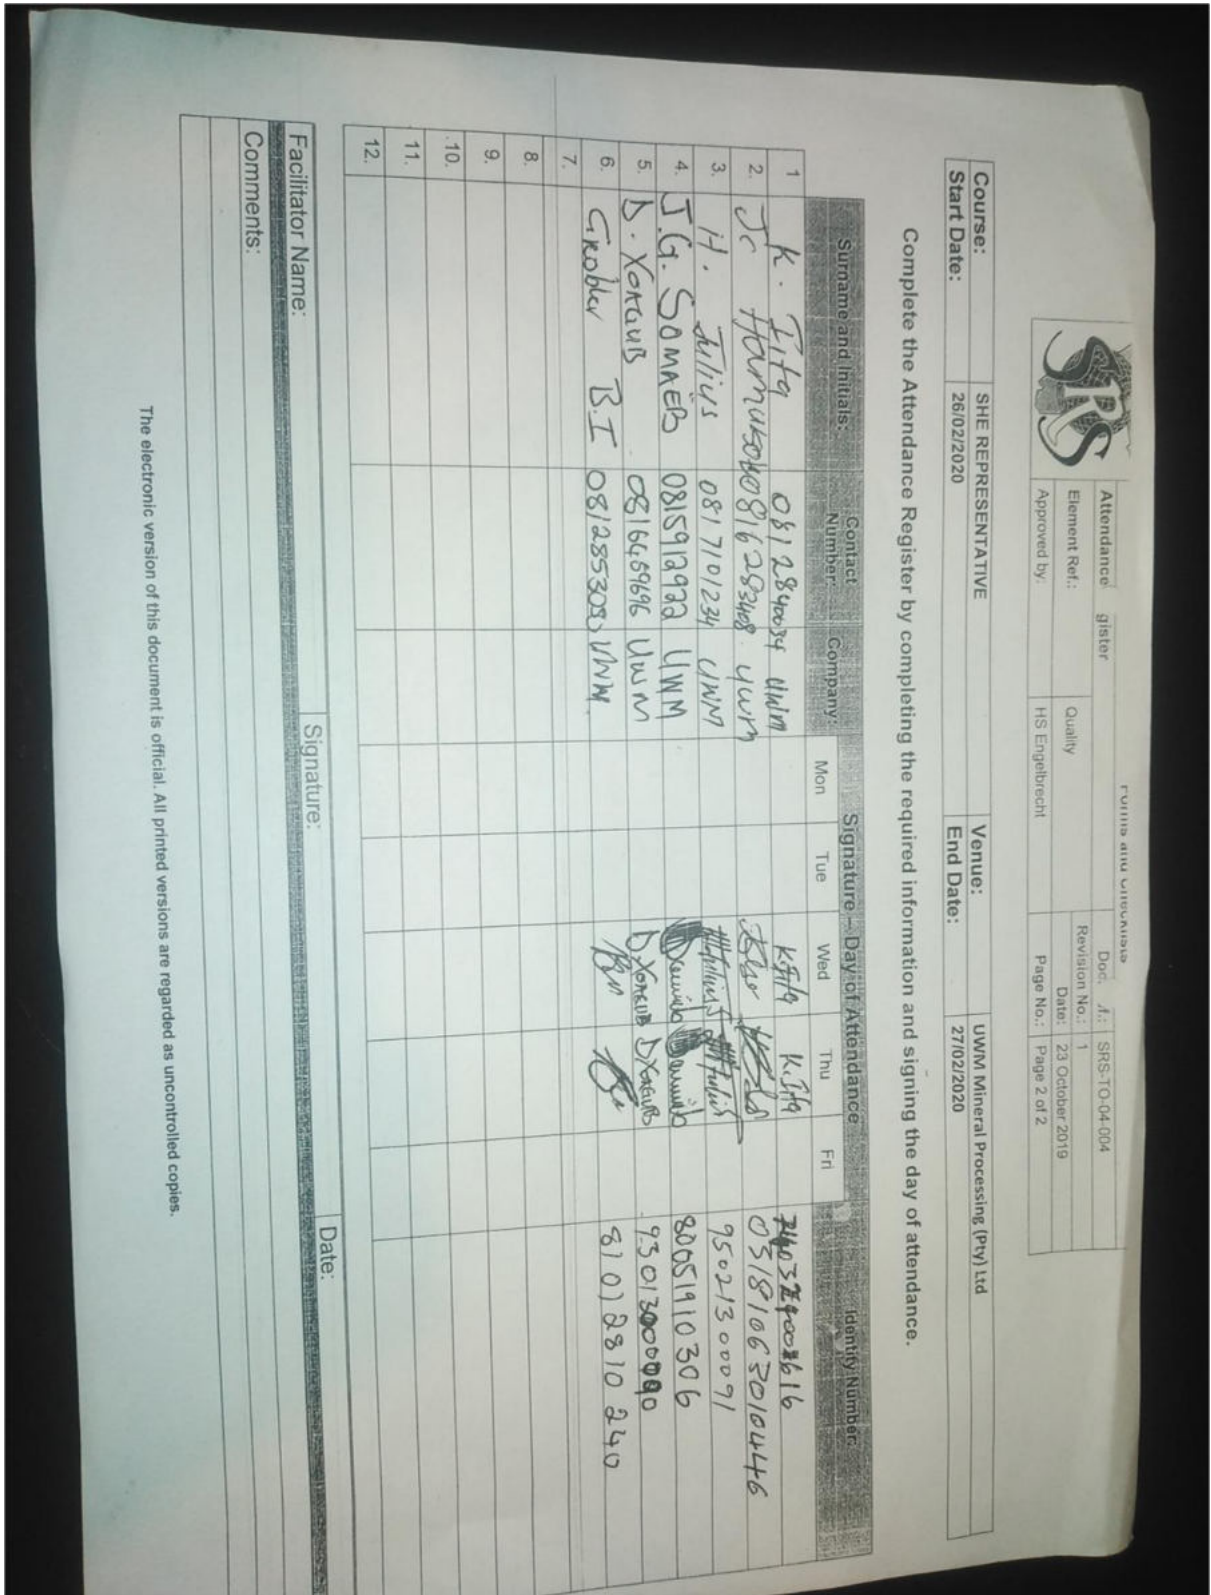 SRS
Attendance gister Doc. .f.: SRS-TO-04-004
Revision No.: 1
Element Ref.: Quality Date: 23 October 2019
Approved by: HS Engelbrecht Page No.: Page 2 of 2
Course: SHE REPRESENTATIVE Venue: UWM Mineral Processing (Pty) Ltd
Start Date: 26/02/2020 End Date: 27/02/2020
Complete the Attendance Register by completing the required information and signing the day of attendance.
Surname and Initials: Contact Number: Company: Signature – Day of Attendance Identity Number:
Mon Tue Wed Thu Fri
1 K. Iita 0812840034 UWM K.Iita K.Iita
2. JC 0816283408 UWM 03181063010446
3. H. Julius 0817101234 UWM 95021300091
4. J.G. SOMAEB 0815912922 UWM 80051910306
5. D. XOAGUB 0816469696 UWM D XOAGUB D XOAGUB 93013000090
6. Grobler B.I UWM 81012810240
7.
8.
9.
10.
11.
12.
Facilitator Name: Signature: Date:
Comments:
The electronic version of this document is official. All printed versions are regarded as uncontrolled copies.